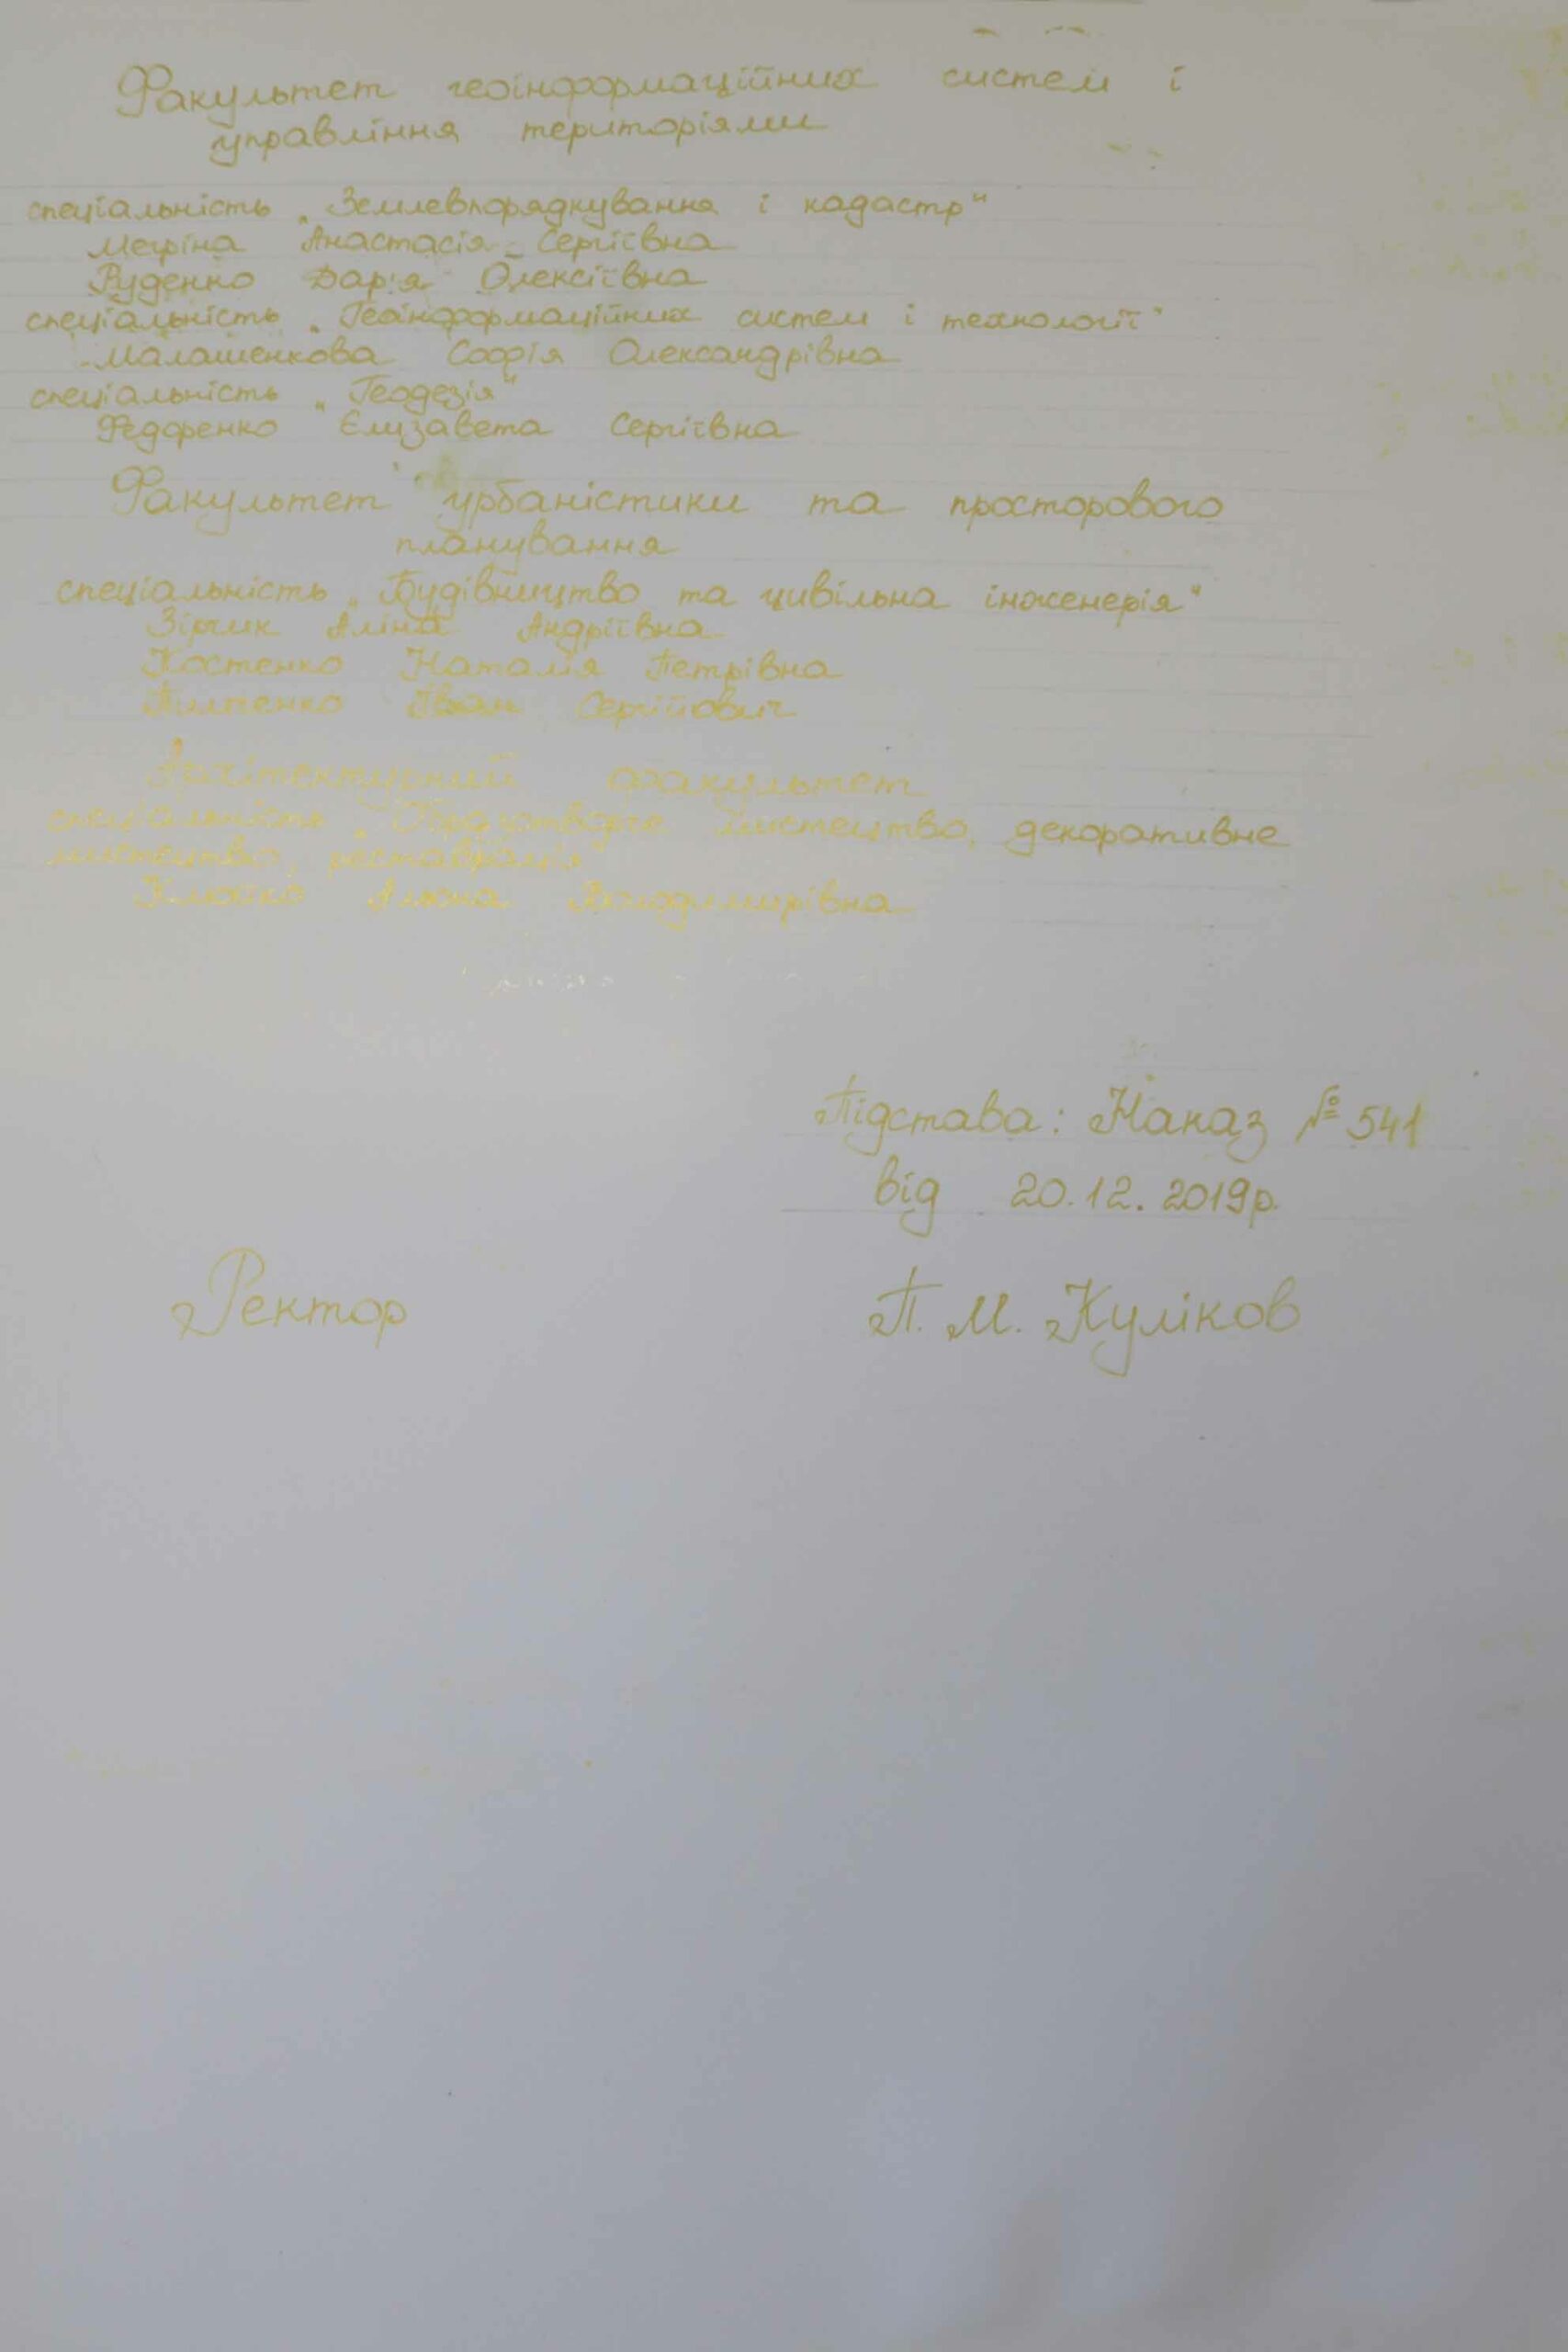 Факультет геоінформаційних систем і
управління територіями
спеціальність „Землевпорядкування і кадастр"
Анастасія Сергіївна
Руденко Дар'я Олексіївна
спеціальність „Геоінформаційних систем і технології"
Малашенкова Софія Олександрівна
спеціальність „Геодезія"
Федоренко Єлизавета Сергіївна
Факультет урбаністики та просторового
планування
спеціальність „Будівництво та цивільна інженерія"
Зірчик Аліна Андріївна
Костенко Наталія Петрівна
Пилипенко Іван Сергійович
Архітектурний факультет
спеціальність „Образотворче мистецтво, декоративне
мистецтво, реставрація"
Альона Володимирівна
Підстава: Наказ № 541
від 20.12.2019р.
Ректор П. М. Куліков